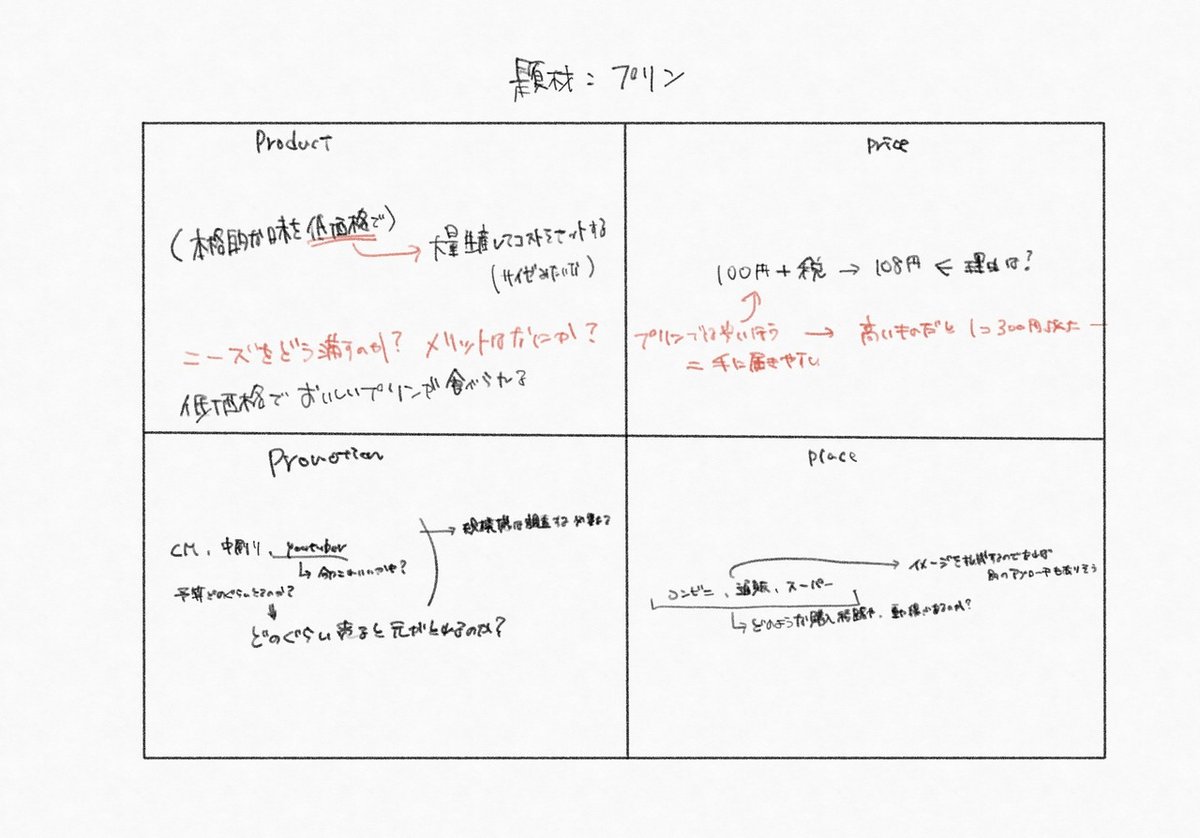 題材:プリン
Product
(本格的な味を低価格で)
大量生産してコストをカットする
(サイゼみたいな)
ニーズをどう満すのか? メリットはなにか?
低価格でおいしいプリンが食べられる
price
100円+税 → 108円 ← 理由は?
プリンでは安いほう → 高いものだと1コ300円
= 手に届きやすい
Promotion
CM、中刷り、youtuber
予算どのぐらいとるのか?
どのぐらい売ると元がとれるのか?
調査する必要ある
place
コンビニ、通販、スーパー
どのような購入経路や、動機があるのか?
イメージを払拭するのであれば
別のアプローチも